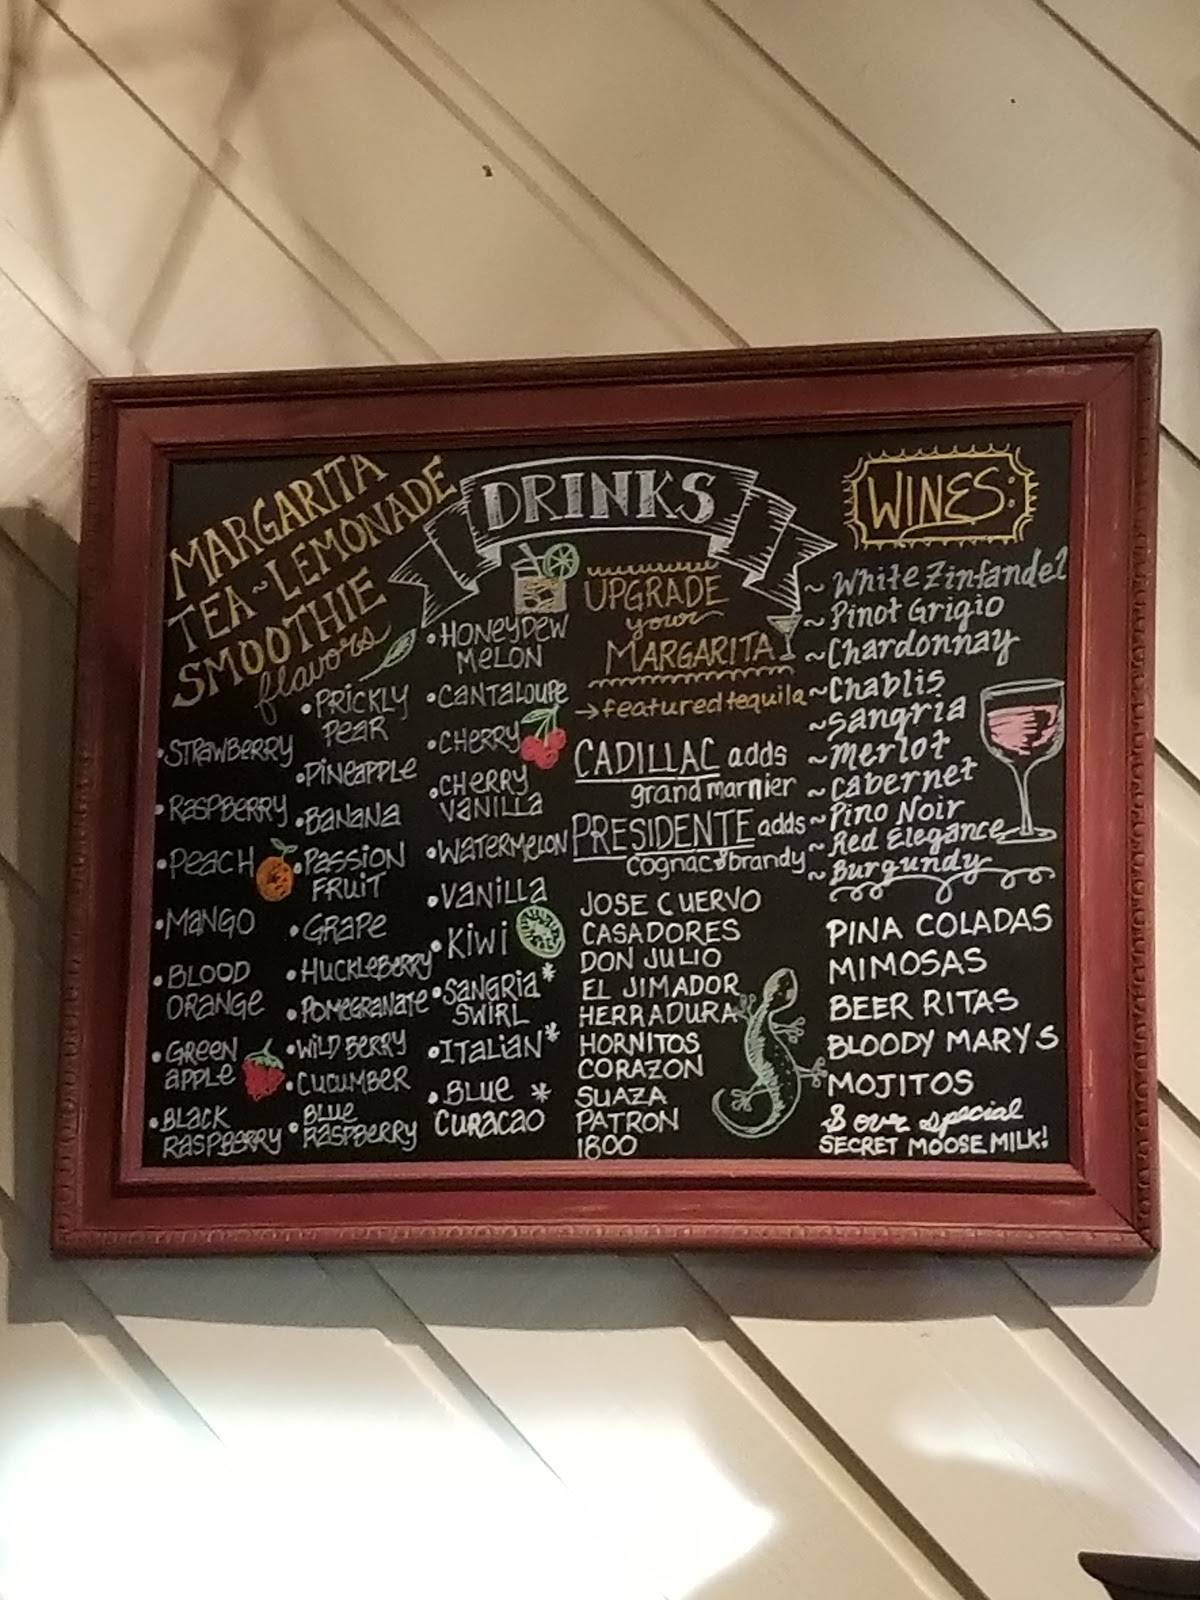 DRINKS
MARGARITA
TEA~LEMONADE
SMOOTHIE
flavors
•STRAWBERRY
•RASPBERRY
•PEACH
•MANGO
•BLOOD
ORANGE
•GREEN
APPLE
•BLACK
RASPBERRY
•PRICKLY
PEAR
•PINEAPPLE
•BANANA
•PASSION
FRUIT
•GRAPE
•HUCKLEBERRY
•POMEGRANATE
•WILD BERRY
•CUCUMBER
•BLUE
RASPBERRY
•HONEYDEW
MELON
•CANTALOUPE
•CHERRY
•CHERRY
VANILLA
•WATERMELON
•VANILLA
•KIWI
•SANGRIA*
SWIRL
•ITALIAN*
•BLUE *
CURACAO
UPGRADE
your
MARGARITA
→featured tequila
CADILLAC adds
grand marnier
PRESIDENTE adds
cognac & brandy
JOSE CUERVO
CASADORES
DON JULIO
EL JIMADOR
HERRADURA
HORNITOS
CORAZON
SUAZA
PATRON
1800
WINES:
~White Zinfandel
~Pinot Grigio
~Chardonnay
~Chablis
~Sangria
~Merlot
~Cabernet
~Pino Noir
~Red Elegance
~Burgundy
PINA COLADAS
MIMOSAS
BEER RITAS
BLOODY MARYS
MOJITOS
& our special
SECRET MOOSE MILK!